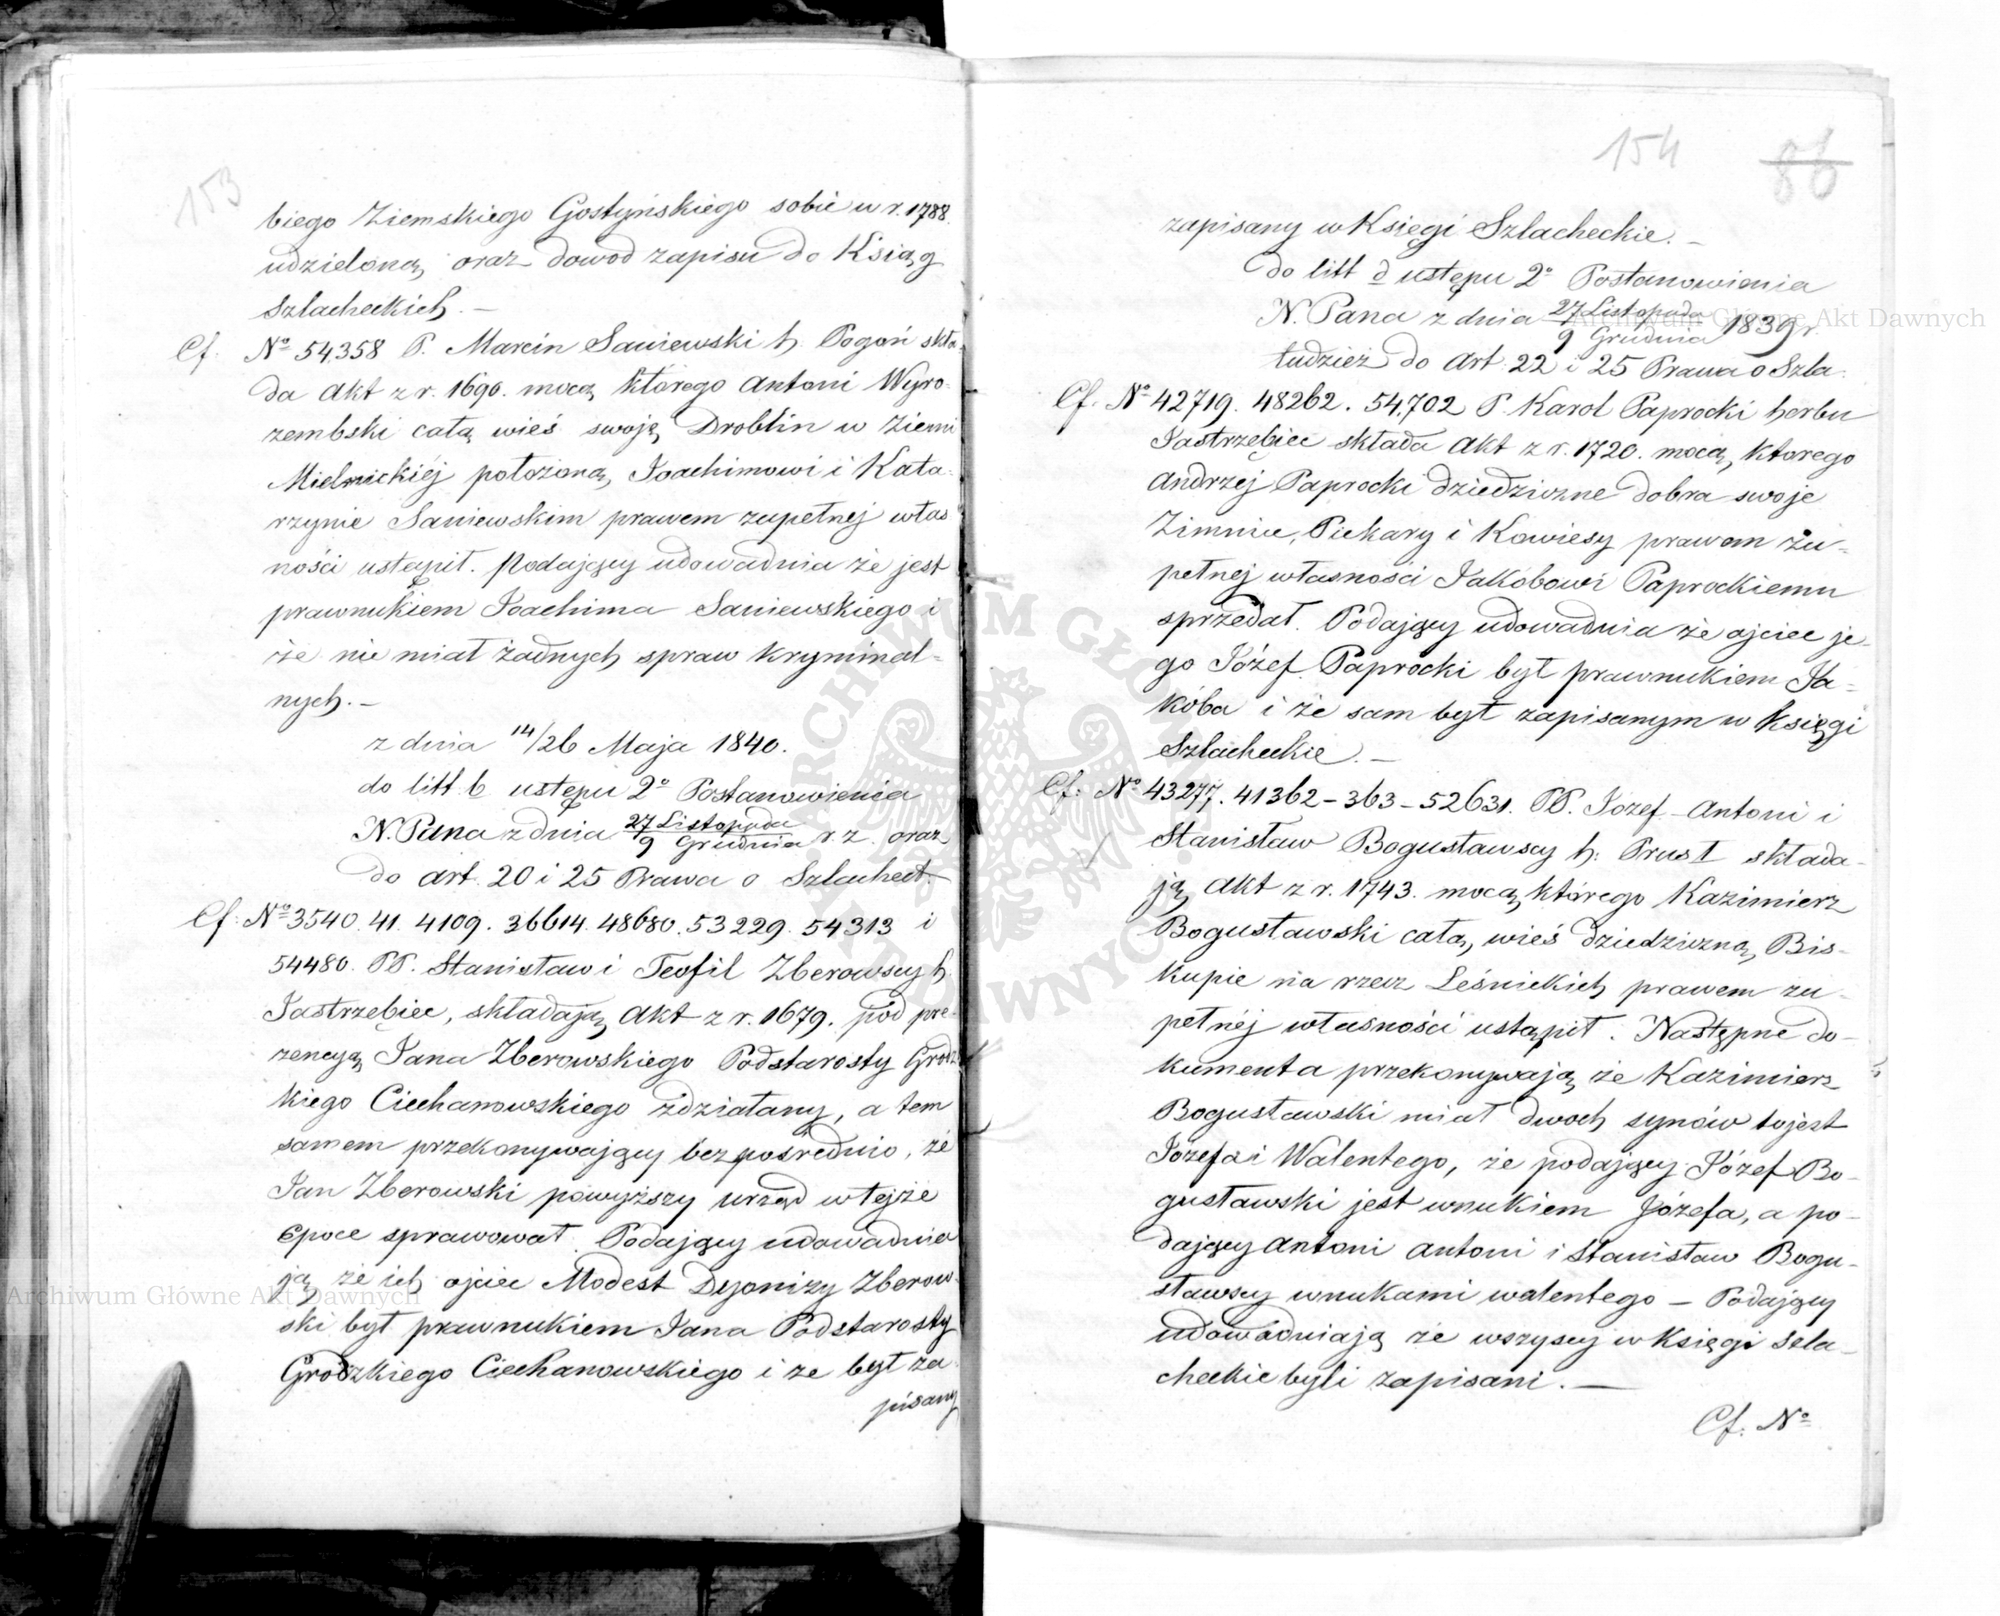 153
biego Ziemskiego Gostyńskiego sobie w r. 1788
udzieloną, oraz dowód zapisu do Ksiąg
Szlacheckich. —
Cf. № 54,358 P. Marcin Saniewski h. Pogoń skła-
da Akt z r. 1690. mocą którego Antoni Wyro-
zembski całą wieś swoję Droblin w Ziemi
Mielnickiéj położoną, Joachimowi i Kata-
rzynie Saniewskim prawem zupełnej włas
ności ustąpił. Podający udowadnia że jest
prawnukiem Joachima Saniewskiego i
że nie miał żadnych spraw kryminal-
nych. —
z dnia 14/26 Maja 1840.
do litt. b ustępu 2° Postanowienia
N. Pana z dnia 27 Listopada / 9 Grudnia r. z. oraz
do art. 20 i 25 Prawa o Szlachect.
Cf: № 3540. 41. 4109. 36614. 48680. 53229. 54313 i
54480. PP. Stanisław i Teofil Zberowscy h.
Jastrzębiec, składają Akt z r. 1679. pod pre-
zencyą Jana Zberowskiego Podstarosty Grodz
kiego Ciechanowskiego zdziałany, a tem
samem przekonywający bezpośrednio, że
Jan Zberowski powyższy urząd w tejże
epoce sprawował. Podający udowadnia
ją że ich ojciec Modest Dyonizy Zberow-
ski był prawnukiem Jana Podstarosty
Grodzkiego Ciechanowskiego i że był za-
pisany
154
86
zapisany w Księgi Szlacheckie. —
do litt d ustępu 2° Postanowienia
N. Pana z dnia 27 Listopada / 9 Grudnia 1839 r.
tudzież do art. 22 i 25 Prawa o Szla.
Cf. № 42719. 48262. 54,702 P. Karol Paprocki herbu
Jastrzębiec składa Akt z r. 1720. mocą, którego
Andrzej Paprocki dziedziczne dobra swoje
Zimnice, Piekary i Kowiesy prawem zu-
pełnej własności Jakóbowi Paprockiemu
sprzedał. Podający udowadnia że ojciec je-
go Józef Paprocki był prawnukiem Ja-
kóba i że sam był zapisanym w Księgi
Szlacheckie. —
Cf: № 43277. 41362-363-52631. PP. Józef Antoni i
Stanisław Bogusławscy h: Prus I składa-
ją Akt z r. 1743. mocą którego Kazimierz
Bogusławski całą, wieś dziedziczną, Bis-
kupie na rzecz Leśnickich prawem zu-
pełnéj własności ustąpił. Następne do-
kumenta przekonywają że Kazimierz
Bogusławski miał dwoch synów to jest
Józefa i Walentego, że podający Józef Bo-
gusławski jest wnukiem Józefa, a po-
dający Antoni Antoni i Stanisław Bogu-
sławscy wnukami walentego — Podający
udowadniają że wszyscy w Księgi Szla-
checkie byli zapisani. —
Cf. №
Archiwum Główne Akt Dawnych
Archiwum Główne Akt Dawnych
ARCHIWUM GŁÓWNE AKT DAWNYCH